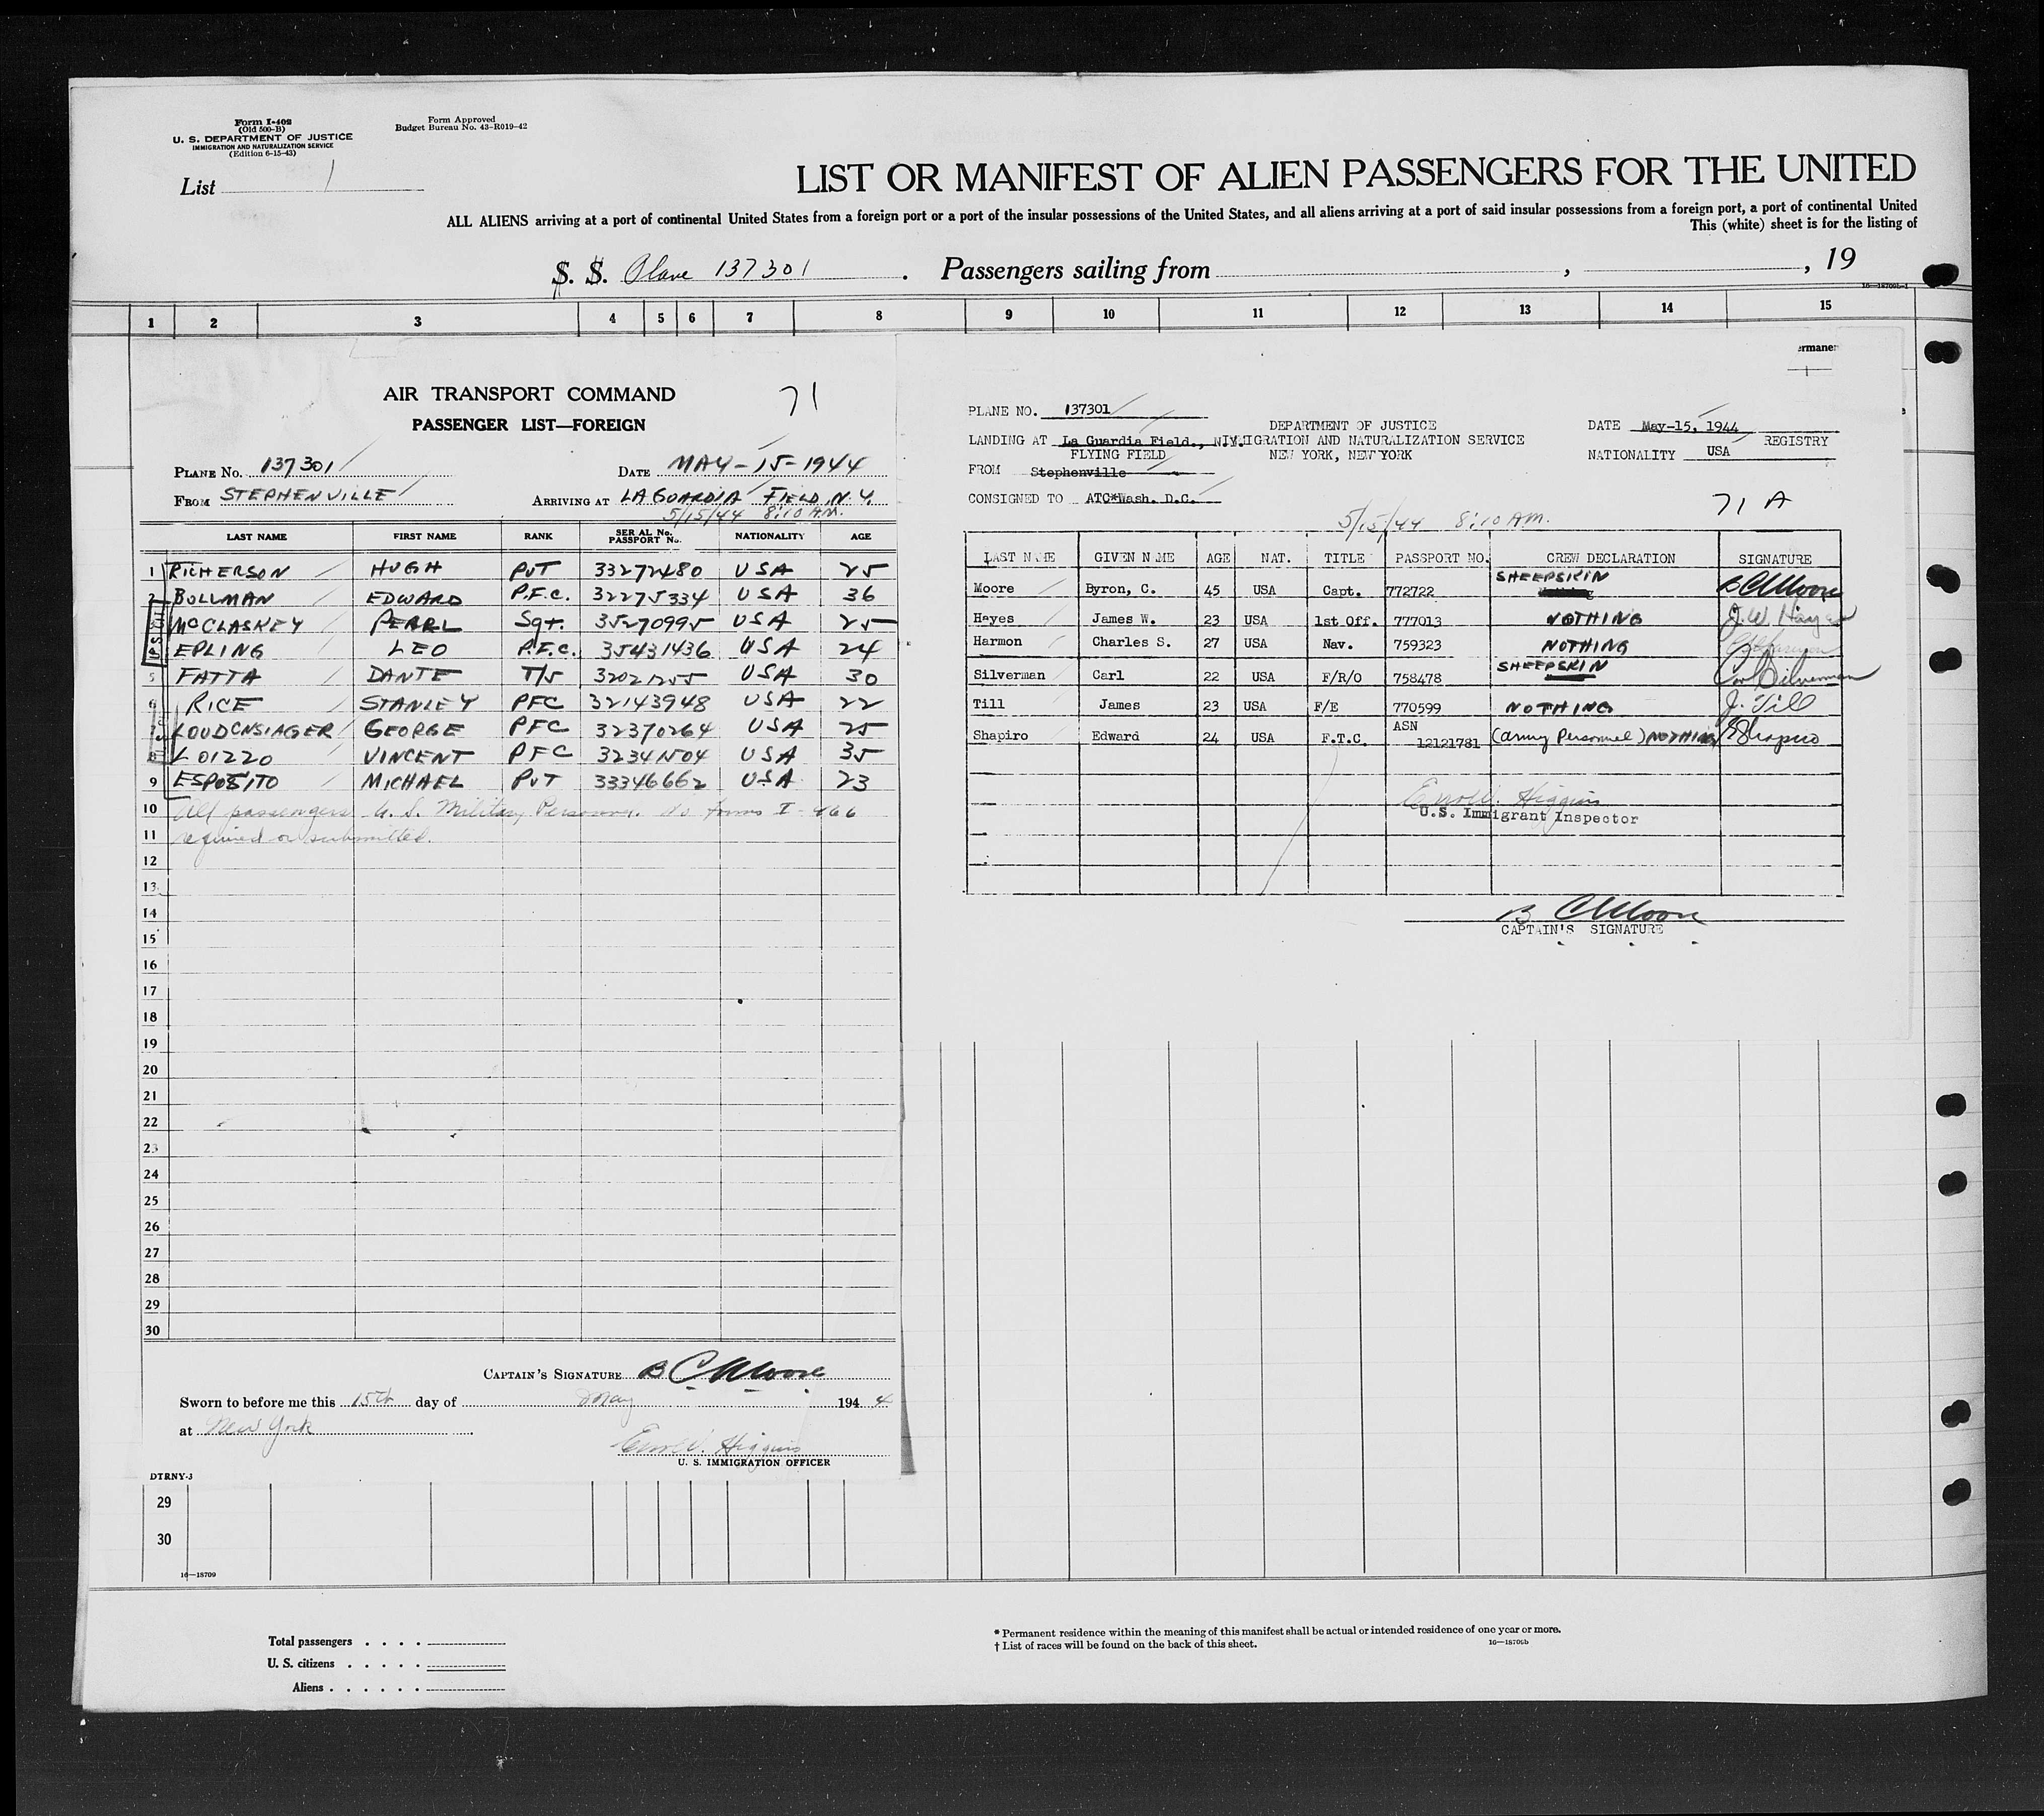 Form I-402
(Old 500-B)
U. S. DEPARTMENT OF JUSTICE
IMMIGRATION AND NATURALIZATION SERVICE
(Edition 6-15-43)
Form Approved
Budget Bureau No. 43-R019-42
List 1
LIST OR MANIFEST OF ALIEN PASSENGERS FOR THE UNITED
ALL ALIENS arriving at a port of continental United States from a foreign port or a port of the insular possessions of the United States, and all aliens arriving at a port of said insular possessions from a foreign port, a port of continental United
This (white) sheet is for the listing of
S. S. Plane 137301 . Passengers sailing from , , 19
1 2 3 4 5 6 7 8 9 10 11 12 13 14 15
AIR TRANSPORT COMMAND 71
PASSENGER LIST—FOREIGN
PLANE No. 137301 DATE MAY-15-1944
FROM STEPHENVILLE ARRIVING AT LA GUARDIA FIELD, N.Y.
5/15/44 8:10 AM.
LAST NAME FIRST NAME RANK SERIAL No. PASSPORT No. NATIONALITY AGE
1 RICHERSON HUGH PVT 33272480 USA 25
2 BOLLMAN EDWARD P.F.C. 32275334 USA 36
McCLASKEY PEARL Sgt. 35270995 USA 25
EPLING LEO P.F.C. 35431436 USA 24
5 FATTA DANTE T/5 32021255 USA 30
6 RICE STANLEY PFC 32143948 USA 22
LOUDENSLAGER GEORGE PFC 32370264 USA 25
8 LOIZZO VINCENT PFC 32341504 USA 35
9 ESPOSITO MICHAEL PVT 33346662 USA 23
10 All passengers U.S. Military Personnel. No forms I-466
11 required or submitted.
12
13
14
15
16
17
18
19
20
21
22
23
24
25
26
27
28
29
30
CAPTAIN'S SIGNATURE B C Moore
Sworn to before me this 15th day of May 194 4
at New York
Higgins
U. S. IMMIGRATION OFFICER
DTRNY-3
29
30
16—18709
Total passengers
U. S. citizens
Aliens
PLANE NO. 137301
DEPARTMENT OF JUSTICE
DATE May-15, 1944
LANDING AT La Guardia Field., N.Y.
IMMIGRATION AND NATURALIZATION SERVICE
REGISTRY
FLYING FIELD
NEW YORK, NEW YORK
NATIONALITY USA
FROM Stephenville
CONSIGNED TO ATC*Wash. D.C.
71 A
5/15/44 8:10 AM.
LAST NAME GIVEN NAME AGE NAT. TITLE PASSPORT NO. CREW DECLARATION SIGNATURE
Moore Byron, C. 45 USA Capt. 772722 SHEEPSKIN B C Moore
Heyes James W. 23 USA 1st Off. 777013 NOTHING J. W. Hayes
Harmon Charles S. 27 USA Nav. 759323 NOTHING
Silverman Carl 22 USA F/R/O 758478 SHEEPSKIN Carl Silverman
Till James 23 USA F/E 770599 NOTHING J. Till
Shapiro Edward 24 USA F.T.C. ASN 12121781 (Army Personnel) NOTHING E Shapiro
Higgins
U.S. Immigrant Inspector
B C Moore
CAPTAIN'S SIGNATURE
* Permanent residence within the meaning of this manifest shall be actual or intended residence of one year or more.
† List of races will be found on the back of this sheet.
16—18709b